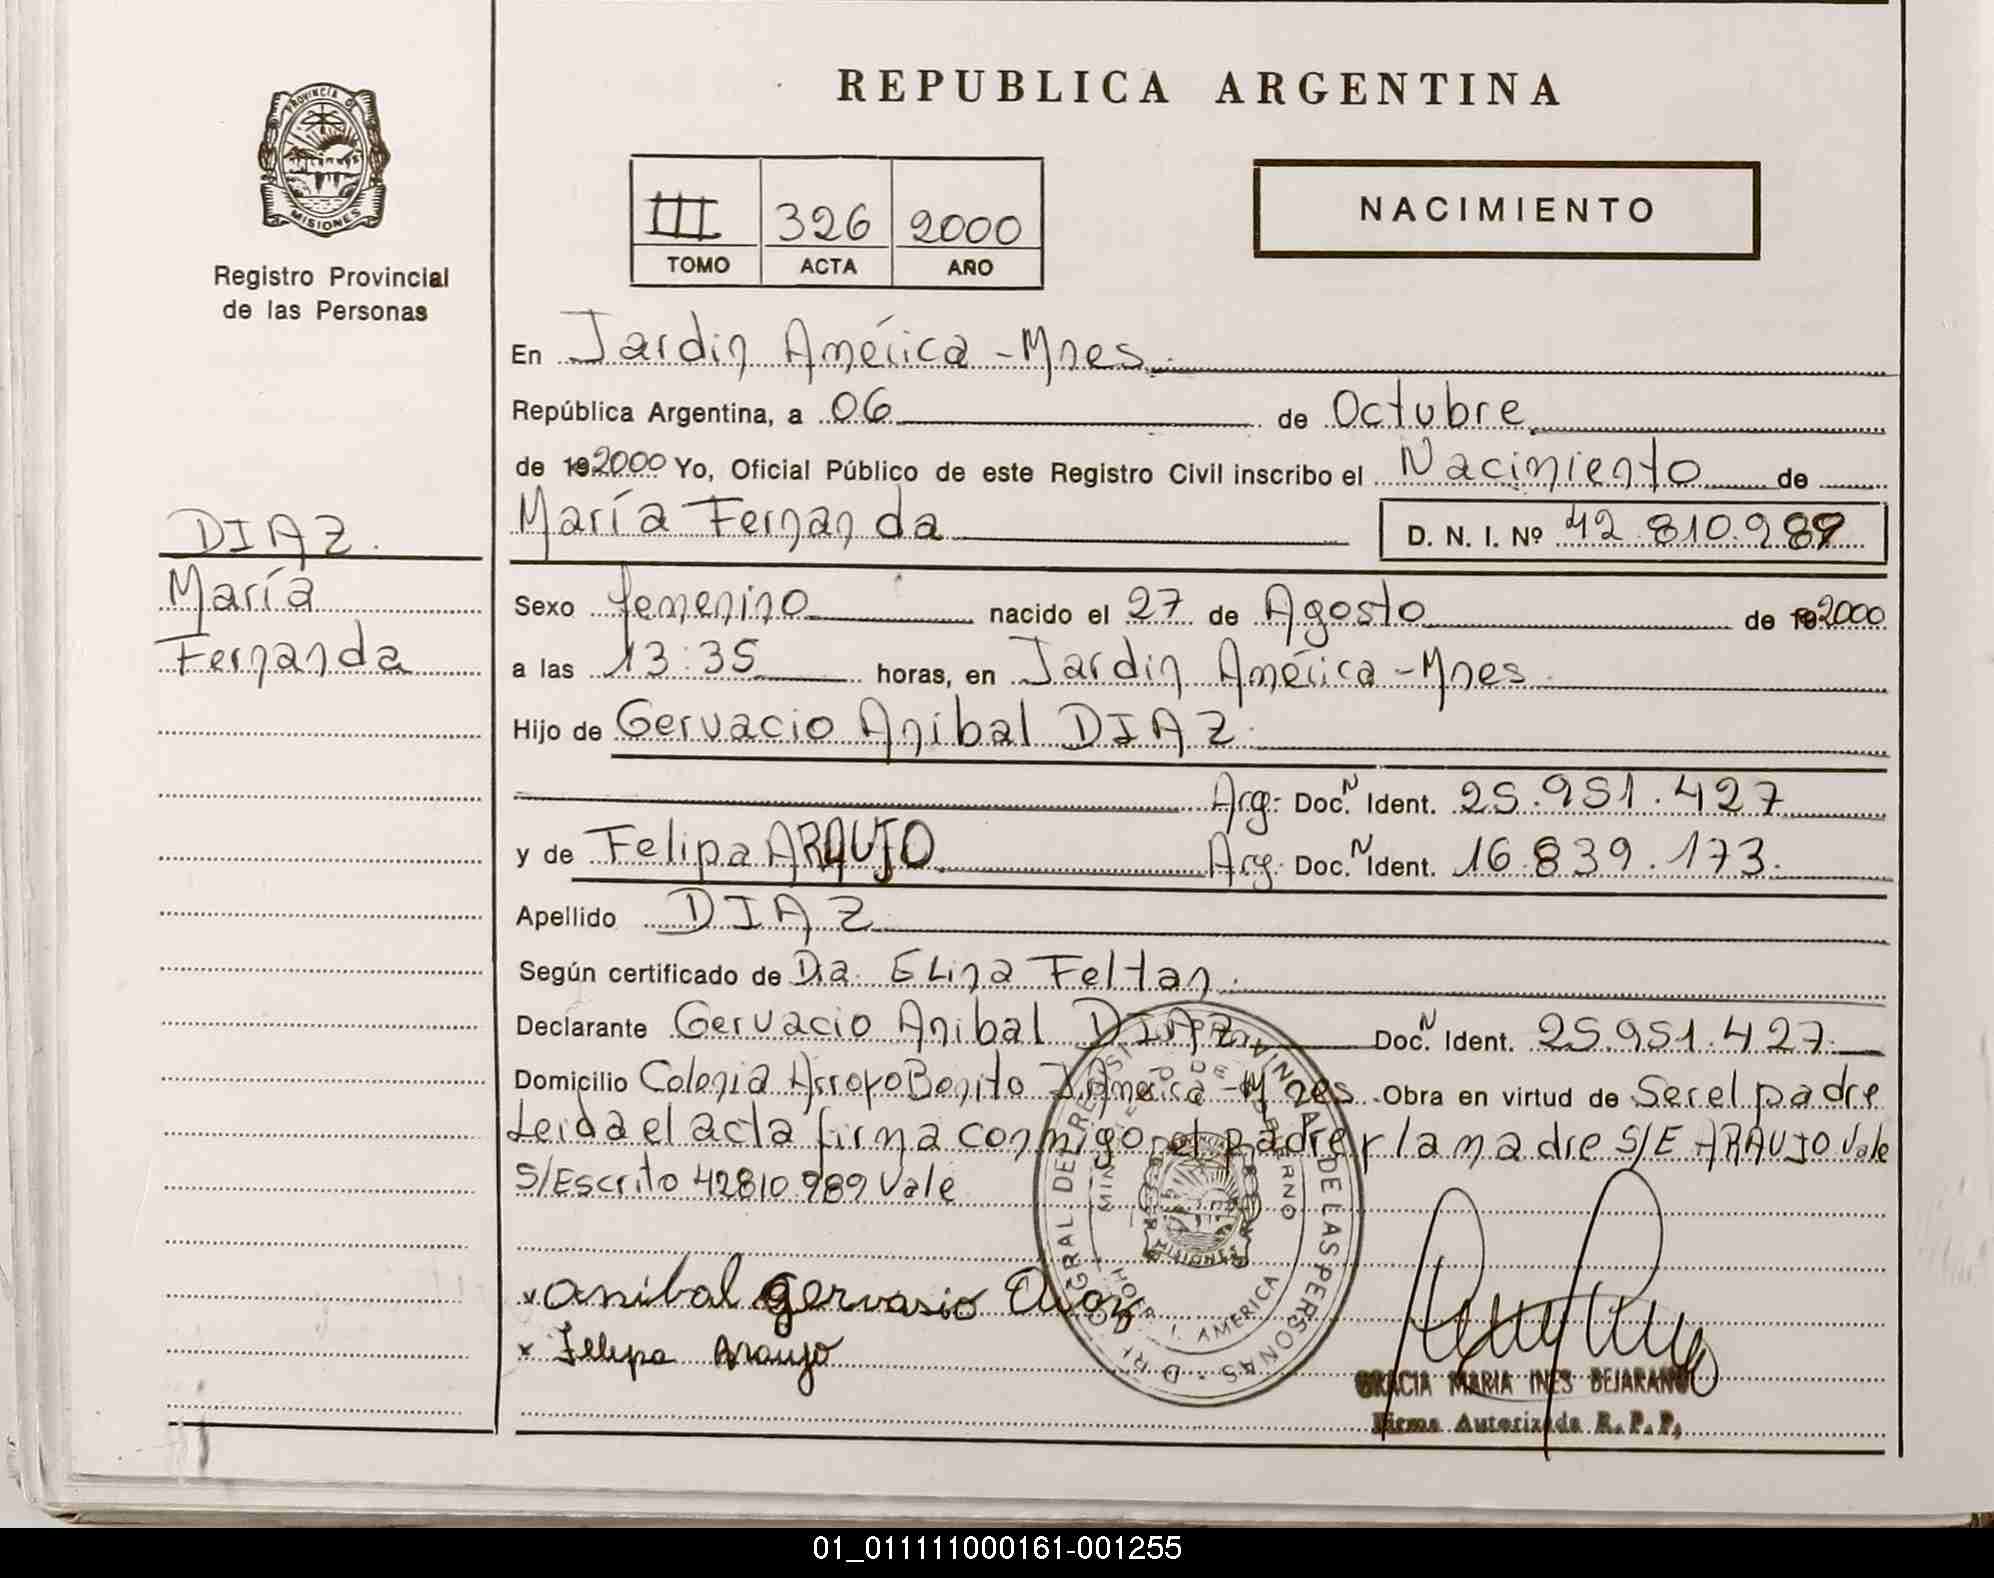 REPUBLICA ARGENTINA
PROVINCIA DE
MISIONES
Registro Provincial
de las Personas
III 326 2000
TOMO ACTA AÑO
NACIMIENTO
En Jardin América - Mnes.
República Argentina, a 06 de Octubre
de 19 2000 Yo, Oficial Público de este Registro Civil inscribo el Nacimiento de
María Fernanda D. N. I. Nº 42.810.989
DIAZ.
María
Fernanda
Sexo femenino nacido el 27 de Agosto de 19 2000
a las 13:35 horas, en Jardin América - Mnes.
Hijo de Gervacio Anibal DIAZ.
Arg. Doc. N Ident. 25.951.427
y de Felipa ARAUJO Arg. Doc. N Ident. 16.839.173.
Apellido DIAZ
Según certificado de Dra. Elina Feltan.
Declarante Gervacio Anibal DIAZ Doc. N Ident. 25.951.427.
Domicilio Colonia Arroyo Benito J. América - Mnes. Obra en virtud de Ser el padre
Leida el acta firma conmigo el padre y la madre S/E ARAUJO Vale
S/Escrito 42810.989 Vale
x anibal gervasio Diaz
x Felipa Araujo
DE LAS PERSONAS
MISIONES
AMERICA
GRACIA MARIA INES BEJARANO
Firma Autorizada R. P. P.
01_011111000161-001255